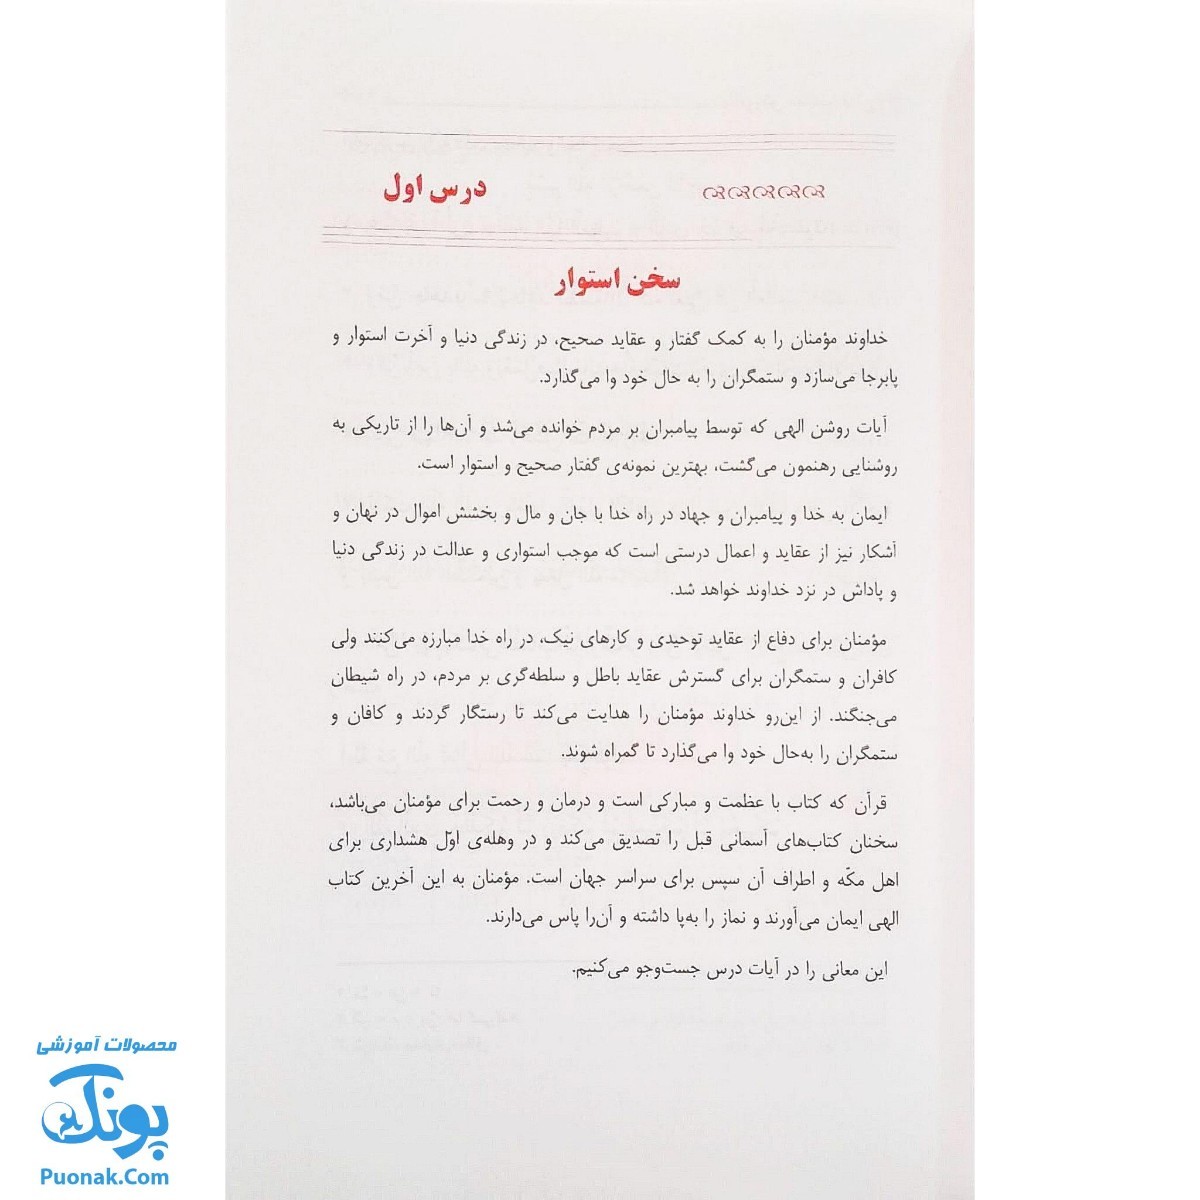 درس اول
سخن استوار
خداوند مؤمنان را به کمک گفتار و عقاید صحیح، در زندگی دنیا و آخرت استوار و
پابرجا می‌سازد و ستمگران را به حال خود وا می‌گذارد.
آیات روشن الهی که توسط پیامبران بر مردم خوانده می‌شد و آن‌ها را از تاریکی به
روشنایی رهنمون می‌گشت، بهترین نمونه‌ی گفتار صحیح و استوار است.
ایمان به خدا و پیامبران و جهاد در راه خدا با جان و مال و بخشش اموال در نهان و
آشکار نیز از عقاید و اعمال درستی است که موجب استواری و عدالت در زندگی دنیا
و پاداش در نزد خداوند خواهد شد.
مؤمنان برای دفاع از عقاید توحیدی و کارهای نیک، در راه خدا مبارزه می‌کنند ولی
کافران و ستمگران برای گسترش عقاید باطل و سلطه‌گری بر مردم، در راه شیطان
می‌جنگند. از این‌رو خداوند مؤمنان را هدایت می‌کند تا رستگار گردند و کافان و
ستمگران را به‌حال خود وا می‌گذارد تا گمراه شوند.
قرآن که کتاب با عظمت و مبارکی است و درمان و رحمت برای مؤمنان می‌باشد،
سخنان کتاب‌های آسمانی قبل را تصدیق می‌کند و در وهله‌ی اوّل هشداری برای
اهل مکّه و اطراف آن سپس برای سراسر جهان است. مؤمنان به این آخرین کتاب
الهی ایمان می‌آورند و نماز را به‌پا داشته و آن‌را پاس می‌دارند.
این معانی را در آیات درس جست‌وجو می‌کنیم.
محصولات آموزشی
پونک
Puonak.Com